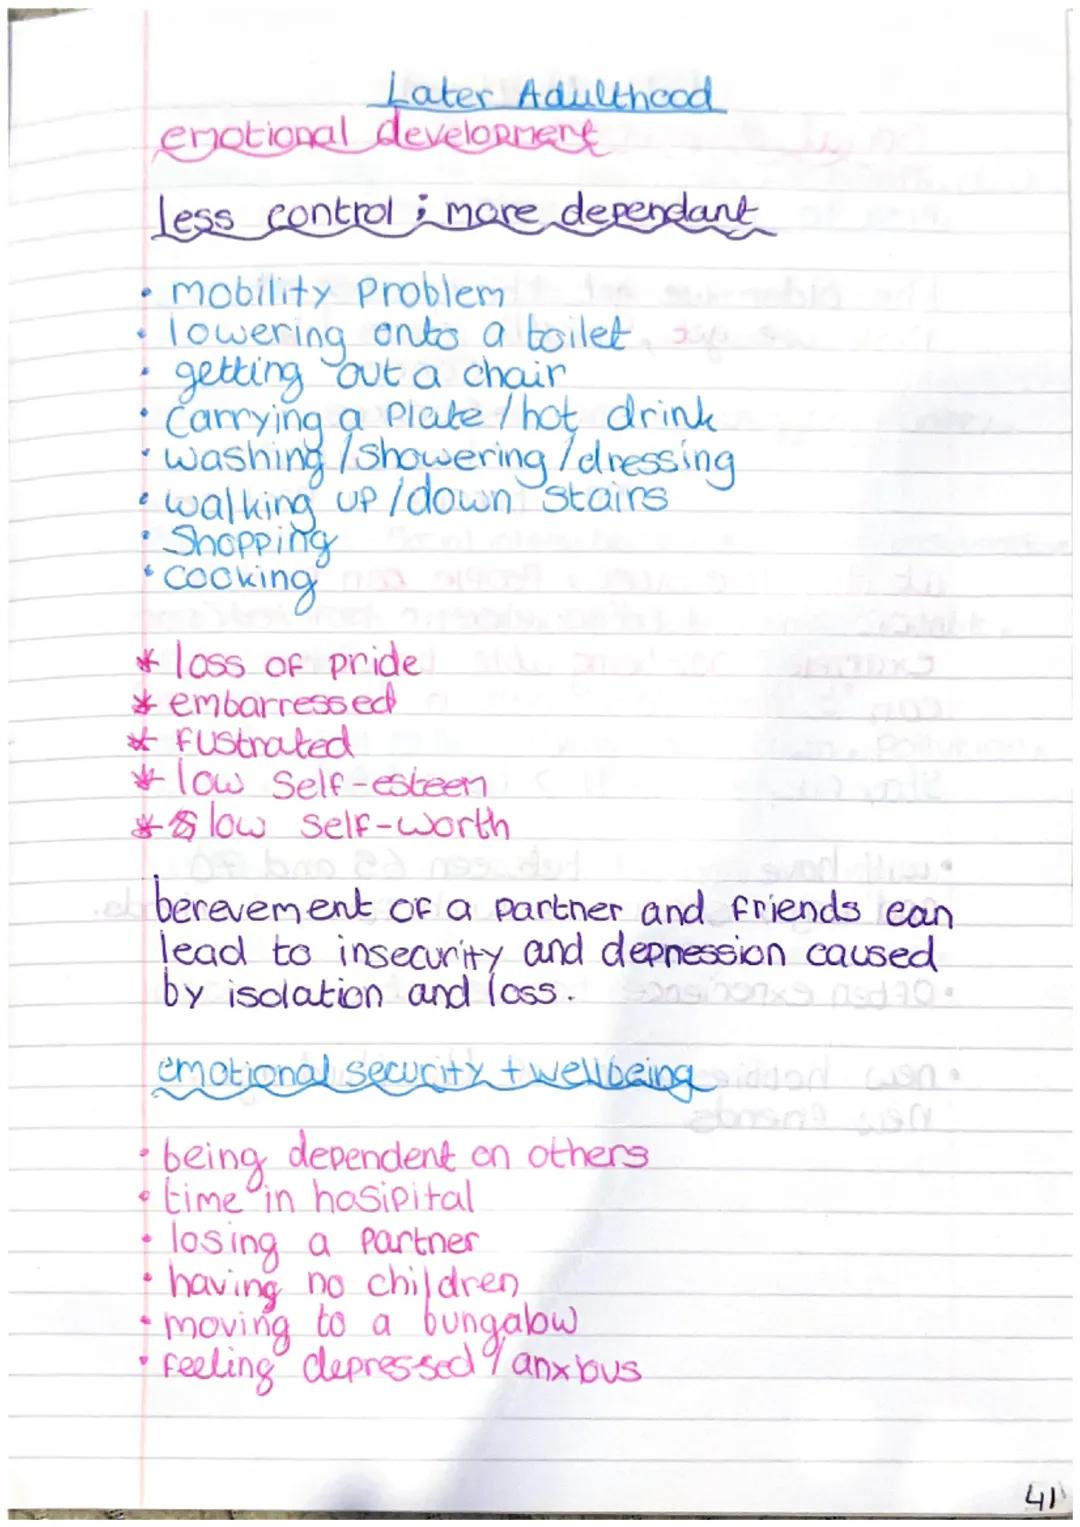 Later Adulthood
emotional development
Less control ; more dependant
• mobility Problem
• lowering onto a toilet
• getting out a chair
• Carrying a Plate / hot drink
• washing / Showering / dressing
• walking up / down stairs
• Shopping
• cooking
* loss of pride
* embarressed
* fustrated
* low Self-esteen
* low self-worth
berevement of a partner and friends can
lead to insecurity and depression caused
by isolation and loss.
emotional security + wellbeing
• being dependent on others
• time in hosipital
• losing a partner
• having no children
• moving to a bungalow
• feeling depressed / anxious
41